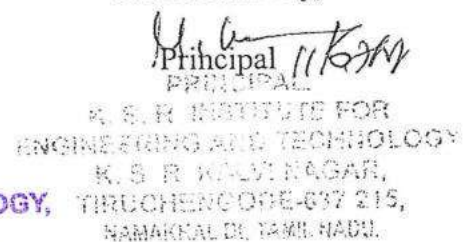 Principal
PRINCIPAL
K. S. R. INSTITUTE FOR
ENGINEERING AND TECHNOLOGY
K. S. R. KALVI NAGAR,
OGY, TIRUCHENGODE-637 215,
NAMAKKAL DT, TAMIL NADU.